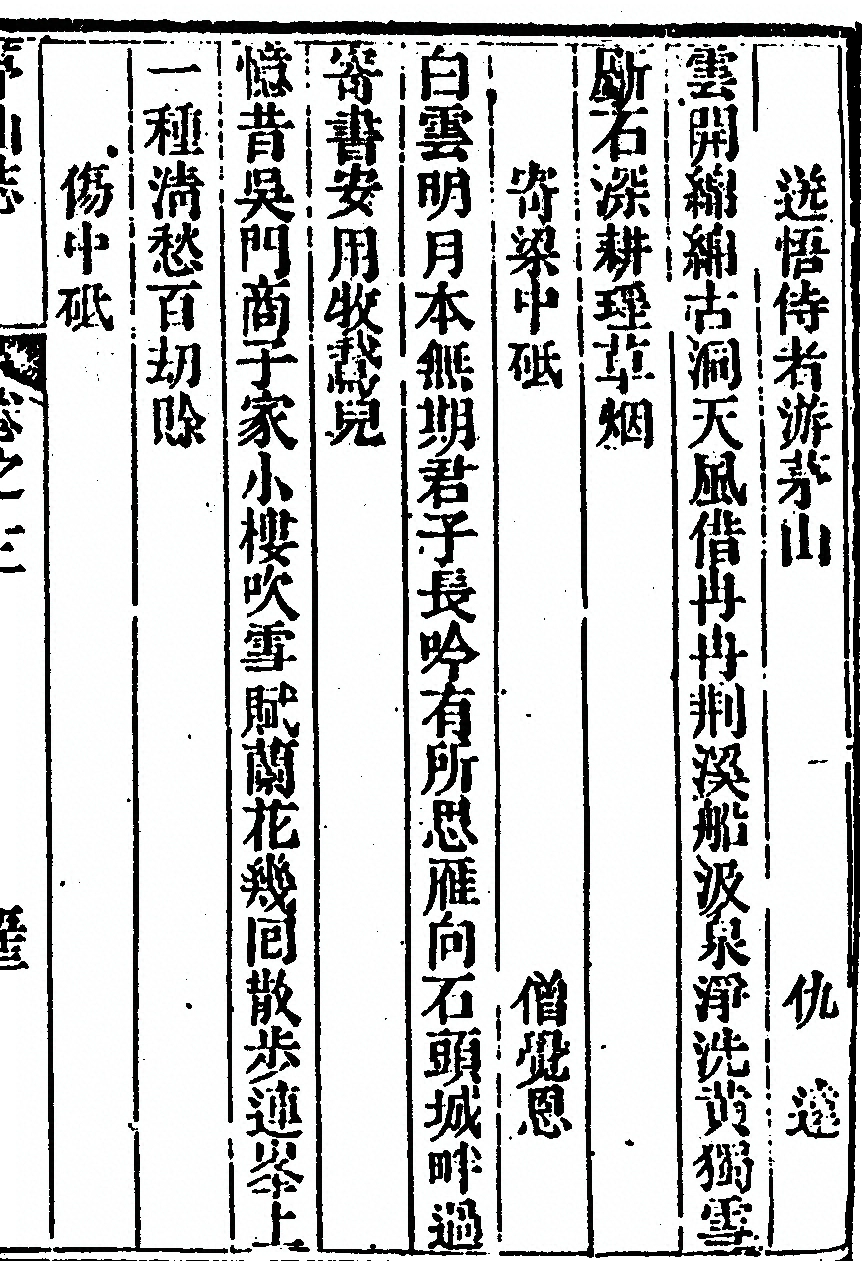 送悟侍者游茅山　仇遠
雲開綿綿古洞天風借冉冉荆溪船汲泉淨洗黄獨雪
斸石深耕瑶草烟
寄梁中砥　僧覺恩
白雲明月本無期君子長吟有所思雁向石頭城畔過
寄書安用牧鵞兒
憶昔吳門商子家小樓吹雪賦蘭花幾回散步連峯上
一種淸愁百刼賖
傷中砥
茅山志　卷之三